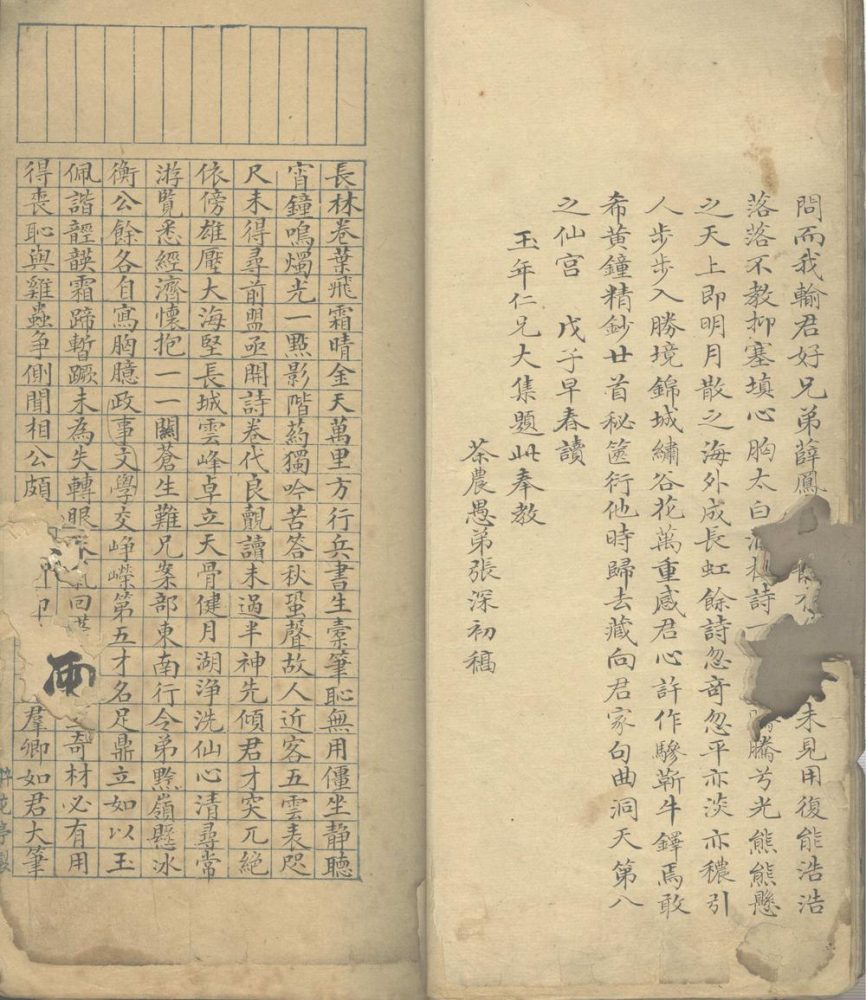 問而我輸君好兄弟薛鳳未見用復能浩浩
落落不教抑塞填心胸太白詩一騰兮光熊熊懸
之天上即明月散之海外成長虹餘詩忽奇忽平亦淡亦穠引
人步步入勝境錦城繡谷花萬重感君心許作驂靳牛鐸焉敢
希黃鐘精鈔廿首秘篋衍他時歸去藏向君家句曲洞天第八
之仙宮 戊子早春讀
玉年仁兄大集題此奉教
茶農愚弟張深初稿
長林卷葉飛霜晴金天萬里方行兵書生橐筆恥無用僵坐靜聽
宵鐘鳴燭光一點影階葯獨吟苦答秋蛩聲故人近客五雲表咫
尺未得尋前盟亟開詩卷代良覿讀未過半神先傾君才突兀絕
依傍雄壓大海堅長城雲峰卓立天骨健月湖淨洗仙心清尋常
游覽悉經濟懷抱一一關蒼生難兄案部東南行令弟黔嶺懸冰
衡公餘各自寫胸臆政事文學交崢嶸第五才名足鼎立如以玉
佩諧䪫韺霜蹄暫蹶未為失轉眼回奇材必有用
得喪恥與雞蟲爭側聞相公頗雨羣卿如君大筆